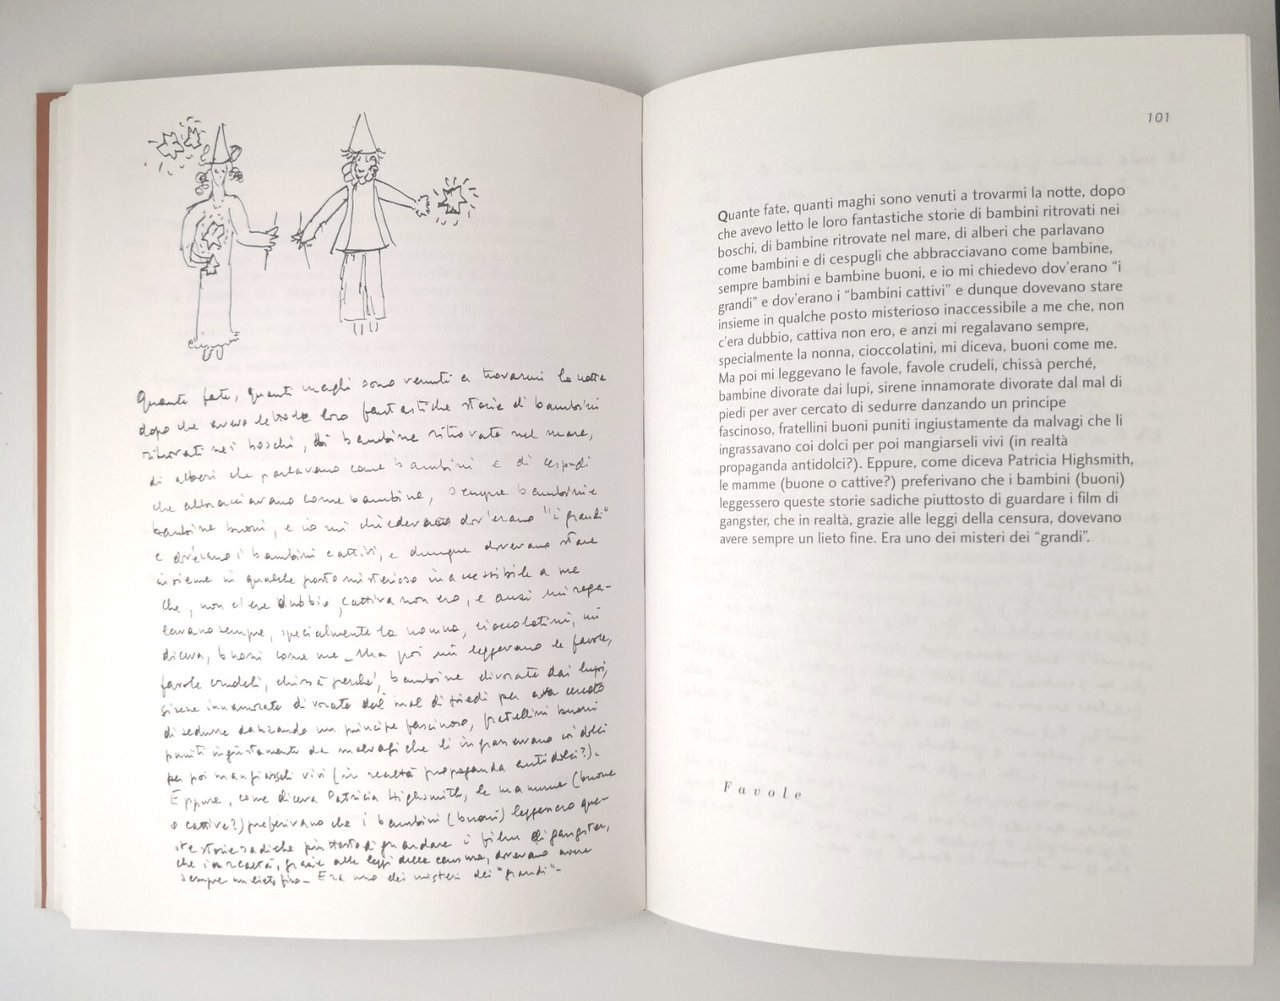 Quante fate, quanti maghi sono venuti a trovarmi la notte
dopo che avevo letto le loro fantastiche storie di bambini
ritrovati nei boschi, di bambine ritrovate nel mare,
di alberi che parlavano come bambini e di cespugli
che abbracciavano come bambine, sempre bambini e
bambine buoni, e io mi chiedevo dov'erano "i grandi"
e dov'erano i bambini cattivi, e dunque dovevano stare
insieme in qualche posto misterioso inaccessibile a me
che, non c'era dubbio, cattiva non ero, e anzi mi rega-
lavano sempre, specialmente la nonna, cioccolatini, mi
diceva, buoni come me_ Ma poi mi leggevano le favole,
favole crudeli, chissà perché, bambine divorate dai lupi,
sirene innamorate divorate dal mal di piedi per aver cercato
di sedurre danzando un principe fascinoso, fratellini buoni
puniti ingiustamente da malvagi che li ingrassavano coi dolci
per poi mangiarseli vivi (in realtà propaganda antidolci?).
Eppure, come diceva Patricia Highsmith, le mamme (buone
o cattive?) preferivano che i bambini (buoni) leggessero que-
ste storie sadiche piuttosto di guardare i film di gangster,
che in realtà, grazie alle leggi della censura, dovevano avere
sempre un lieto fine_ Era uno dei misteri dei "grandi"_
101
Quante fate, quanti maghi sono venuti a trovarmi la notte, dopo
che avevo letto le loro fantastiche storie di bambini ritrovati nei
boschi, di bambine ritrovate nel mare, di alberi che parlavano
come bambini e di cespugli che abbracciavano come bambine,
sempre bambini e bambine buoni, e io mi chiedevo dov'erano "i
grandi" e dov'erano i "bambini cattivi" e dunque dovevano stare
insieme in qualche posto misterioso inaccessibile a me che, non
c'era dubbio, cattiva non ero, e anzi mi regalavano sempre,
specialmente la nonna, cioccolatini, mi diceva, buoni come me.
Ma poi mi leggevano le favole, favole crudeli, chissà perché,
bambine divorate dai lupi, sirene innamorate divorate dal mal di
piedi per aver cercato di sedurre danzando un principe
fascinoso, fratellini buoni puniti ingiustamente da malvagi che li
ingrassavano coi dolci per poi mangiarseli vivi (in realtà
propaganda antidolci?). Eppure, come diceva Patricia Highsmith,
le mamme (buone o cattive?) preferivano che i bambini (buoni)
leggessero queste storie sadiche piuttosto di guardare i film di
gangster, che in realtà, grazie alle leggi della censura, dovevano
avere sempre un lieto fine. Era uno dei misteri dei "grandi".
Favole